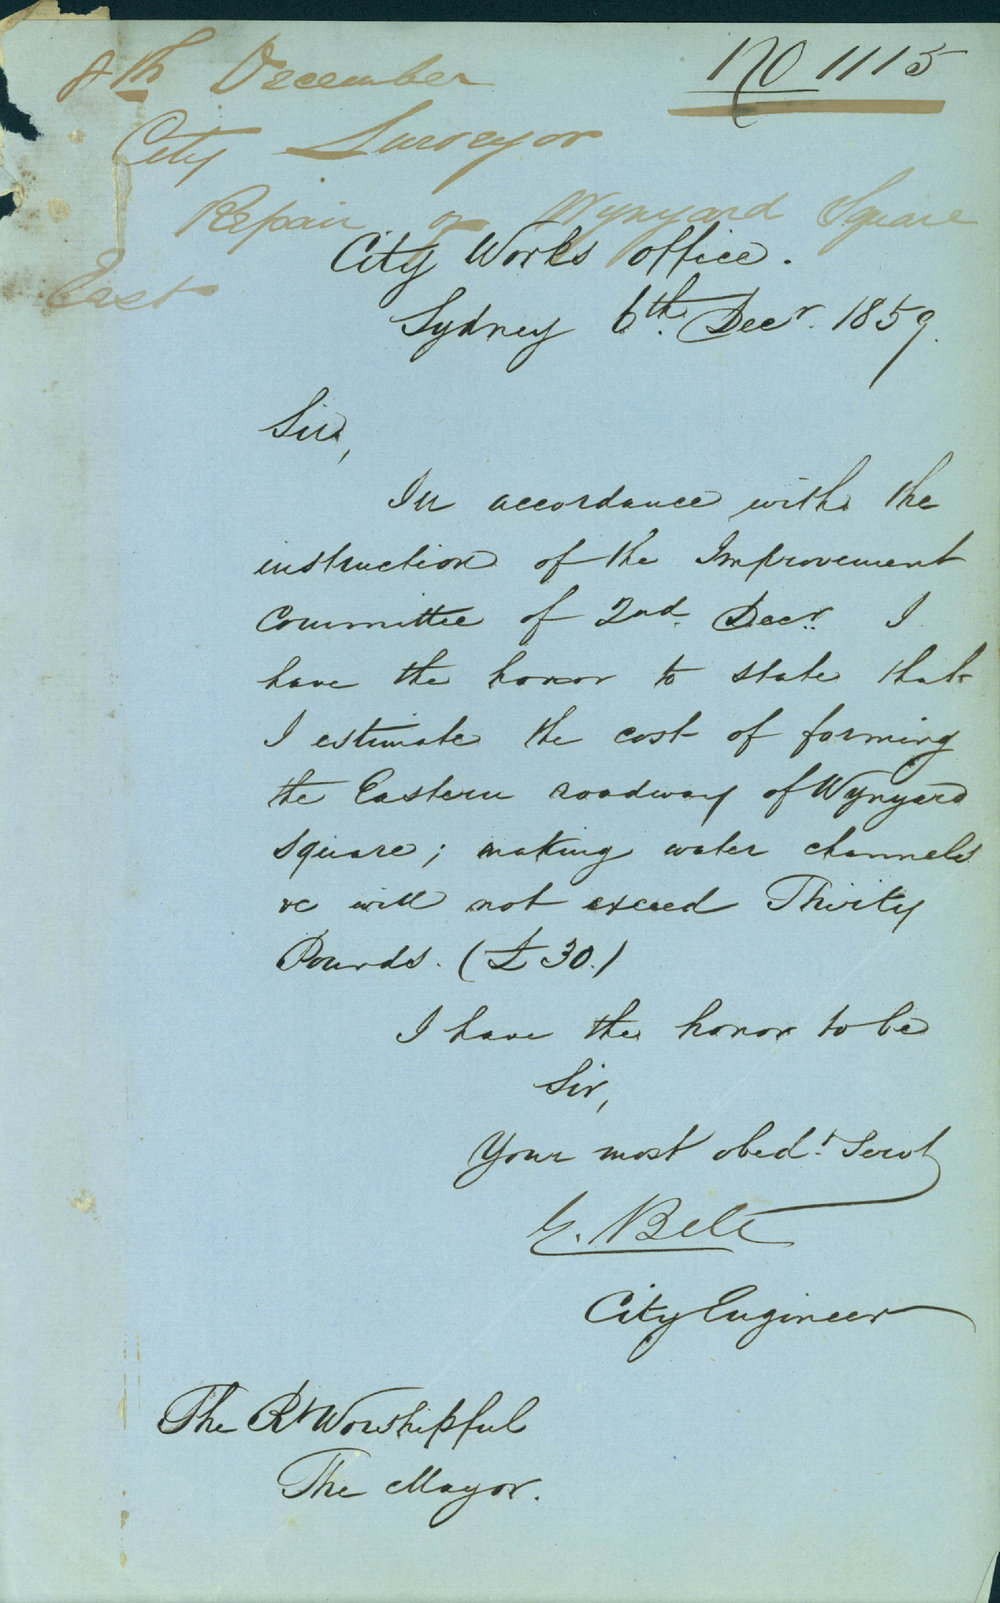 8th December
No 1115
City Surveyor
Repair of Wynyard Square
East
City Works Office.
Sydney 6th. Decr. 1859.
Sir,
In accordance with the
instruction of the Improvement
Committee of 2nd. Decr. I
have the honor to state that
I estimate the cost of forming
the Eastern roadway of Wynyard
Square; making water channels
&c will not exceed Thirty
Pounds. (£30.)
I have the honor to be
Sir,
Your most obedt. Servt
E. Bell
City Engineer
The Rt Worshipful
The Mayor.